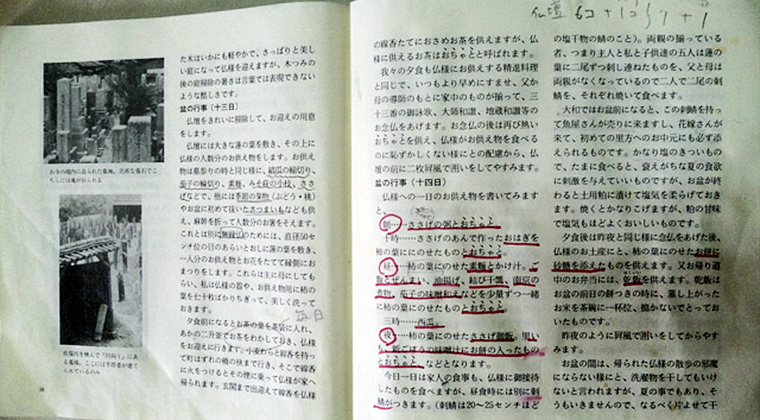 た木はいかにも軽やかで、さっぱりと美し
い庭になって仏様を迎えますが、木つみの
後の庭掃除の暑さは言葉では表現できない
ような酷しさです。
盆の行事(十三日)
仏壇をきれいに掃除して、お迎えの用意
をします。
仏壇には大きな蓮の葉を敷き、その上に
仏様の人数分のお供え物をします。お供え
物は墓参りの時と同じ様に、結瓜の輪切り、
茄子の輪切り、素麺、みそ萩の小枝、ささ
げなどで、他には季節の果物(ぶどう・桃)
やお盆に初めて抜いたさつまいもなども供
え、麻幹を折って人数分のお箸をそえます。
これとは別に無縁仏のためには、直径50セ
ンチ位の目のあらいとおしに蓮の葉を敷き、
一人分のお供え物とお花をたてて縁側にお
まつりをします。これらは主に母にしても
らい、私は仏様の器や、お供え物用に柿の
葉を七十枚ばかりちぎって、美しく洗って
おきます。
夕食前になるとお茶の葉を茶袋に入れ、
あかの二升釜でお茶をわかしておき、仏様
をお迎えに行きます。小麦わらと線香を持っ
て町はずれの橋の狭まで行き、そこで線香
に火をつけるとその煙に乗って仏様が家へ
帰られます。玄関まで出迎えて線香を仏様
お寺の境内に造られた墓地。
ある墓場。
38
仏壇
の線香たてにおさめお茶を供えますが、仏
様に供えるお茶はおちゃとと呼ばれます。
我々の夕食も仏様にお供えする精進料理
と同じで、いつもより早めにすませ、父か
母の導師のもとに家中のものが揃って、三
十三番の御詠歌、大師和讃、地蔵和讃等の
お念仏をあげます。お念仏の後は再び熱い
おちゃとを供え、仏様がお供え物を食べる
のに恥ずかしくない様にとの配慮から、仏
壇の前に二枚屏風で囲いをしてやすみます。
盆の行事(十四日)
仏様への一日のお供え物を書いてみます
と、
朝……ささげの粥とおちゃと
十時……ささげのあんで作ったおはぎを
柿の葉ににのせたものとおちゃと。
昼……柿の葉にのせた素麺とかけ汁。ご
飯とぜんまい、油揚げ、結び干瓢、南京の
煮物、茄子の味噌和えなどを少量ずつ一緒
に柿の葉にのせたものとおちゃと。
三時……西瓜。
夜……柿の葉にのせたささげ御飯。黒い
も、新ごぼうの味噌汁にお餅の入ったもの
とおちゃと、などとなります。
今日一日は家人の食事も、仏様に御接待
したものを食べますが、昼食時には別に刺
鯖がつきます。(刺鯖は20~25センチほど
の塩干物の鯖のこと)。両親の揃っている
者、つまり主人と私と子供達の五人は蓮の
葉に二尾ずつ刺し連ねたものを、父と母は
両親がなくなっているので二人で二尾の刺
鯖を、それぞれ焼いて食べます。
大和ではお盆前になると、この刺鯖を持っ
て魚屋さんが売りに来ますし、花嫁さんが
来て、初めての里方へのお中元にも必ず添
えられるものです。かなり塩のきついもの
で、たまに食べると、衰えがちな夏の食欲
に刺激を与えていいものですが、お盆が終
わると土用粕に漬けて塩気を柔らげておき
ます。焼くとかなりこげますが、粕の甘味
で塩気もほどよくおいしいものです。
夕食後は昨夜と同じ様に念仏をあげた後、
仏様のお土産にと、柿の葉にのせたお餅に
砂糖を添えたものを供えます。又お帰り道
中のお弁当には、乾飯を供えます。乾飯は
お盆の前日の餅つきの時に、蒸し上がった
お米を茶碗に一杯位、搗かないでとってお
いたものです。
昨夜のように屏風で囲いをしてからやす
みます。
お盆の間は、帰られた仏様の散歩の邪魔
にならない様にと、洗濯物を干してもいけ
ないと言われますが、夏の事でもあり、そ
うもいきませんので、なるべく片よせて干